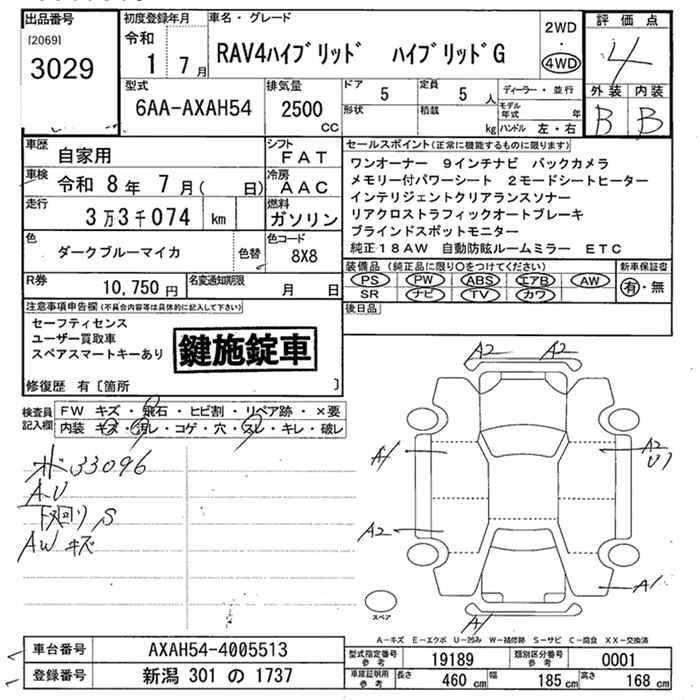 出品番号
[2069]
3029
初度登録年月
令和
1 7月
車名・グレード
RAV4ハイブリッド ハイブリッドG
2WD
・
4WD
評価点
4
外装 内装
B B
型式
6AA-AXAH54
排気量
2500
CC
ドア 5
定員 5 人
形状
積載 kg
ディーラー・並行
モデル年式 年
ハンドル 左・右
車歴
自家用
シフト
FAT
車検 令和 8年 7月( 日)
冷房
AAC
走行
3万3千074 km
燃料
ガソリン
色
ダークブルーマイカ
色替
色コード
8X8
R券
10,750円
名変通知期限
月 日
セールスポイント(正常に機能するものに限ります)
ワンオーナー 9インチナビ バックカメラ
メモリー付パワーシート 2モードシートヒーター
インテリジェントクリアランスソナー
リアクロストラフィックオートブレーキ
ブラインドスポットモニター
純正18AW 自動防眩ルームミラー ETC
装備品(純正品に限り○をつけてください)
PS PW ABS エアB AW
SR ナビ TV カワ
新車保証書
有・無
後日品
注意事項申告欄(不具合内容等は具体的に記入して下さい)
セーフティセンス
ユーザー買取車
スペアスマートキーあり
鍵施錠車
修復歴 有〔箇所 〕
検査員記入欄
FW キズ・飛石・ヒビ割・リペア跡・×要
内装 キズ・汚レ・コゲ・穴・スレ・キレ・破レ
オド33096
AU
下廻りS
AWキズ
A2 A2
A1
A2
U1
A2
A1
A1
スペア
A-キズ E-エクボ U-凹み W-補修跡 S-サビ C-腐食 XX-交換済
車台番号 AXAH54-4005513
登録番号 新潟 301 の 1737
型式指定番号 参考 19189
類別区分番号 参考 0001
車庫証明用 参考 長さ 460 cm 幅 185 cm 高さ 168 cm